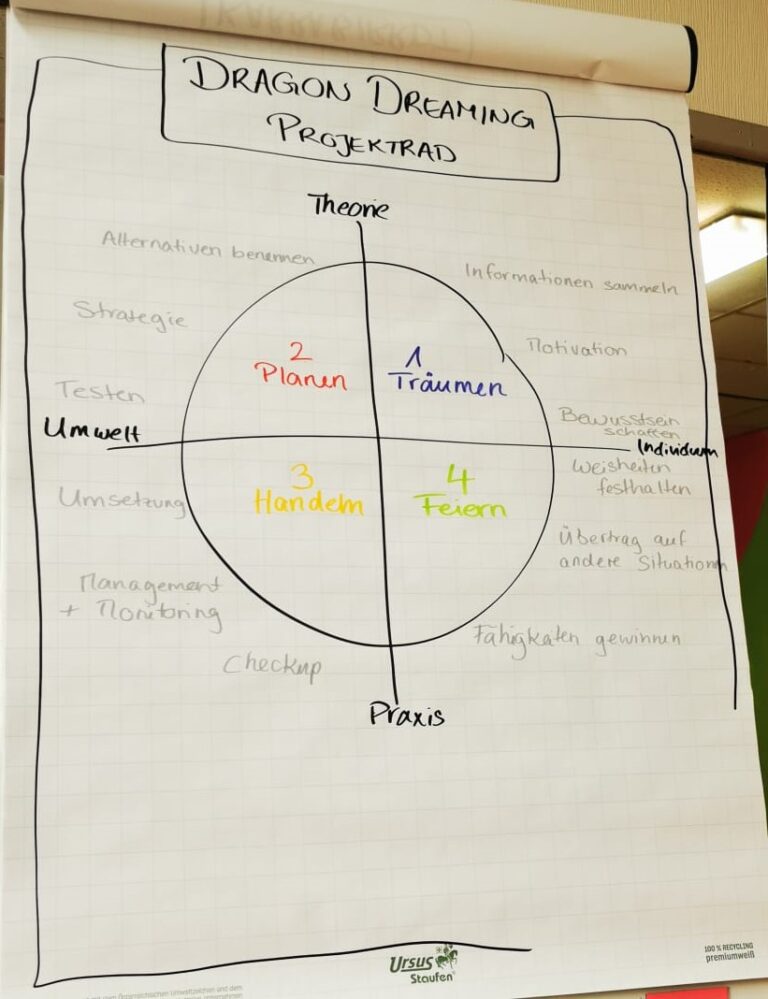 DRAGON DREAMING
PROJEKTRAD
Theorie
Alternativen benennen
Informationen sammeln
Strategie
Motivation
2
Planen
1
Träumen
Testen
Bewusstsein
schaffen
Umwelt
Individuum
Weisheiten
festhalten
3
Handeln
4
Feiern
Umsetzung
Übertrag auf
andere Situationen
Management
+ Monitoring
Fähigkeiten gewinnen
Checkup
Praxis
Ursus
Staufen
100 % RECYCLING
premiumweiß
Österreichischen Umweltzeichen und dem